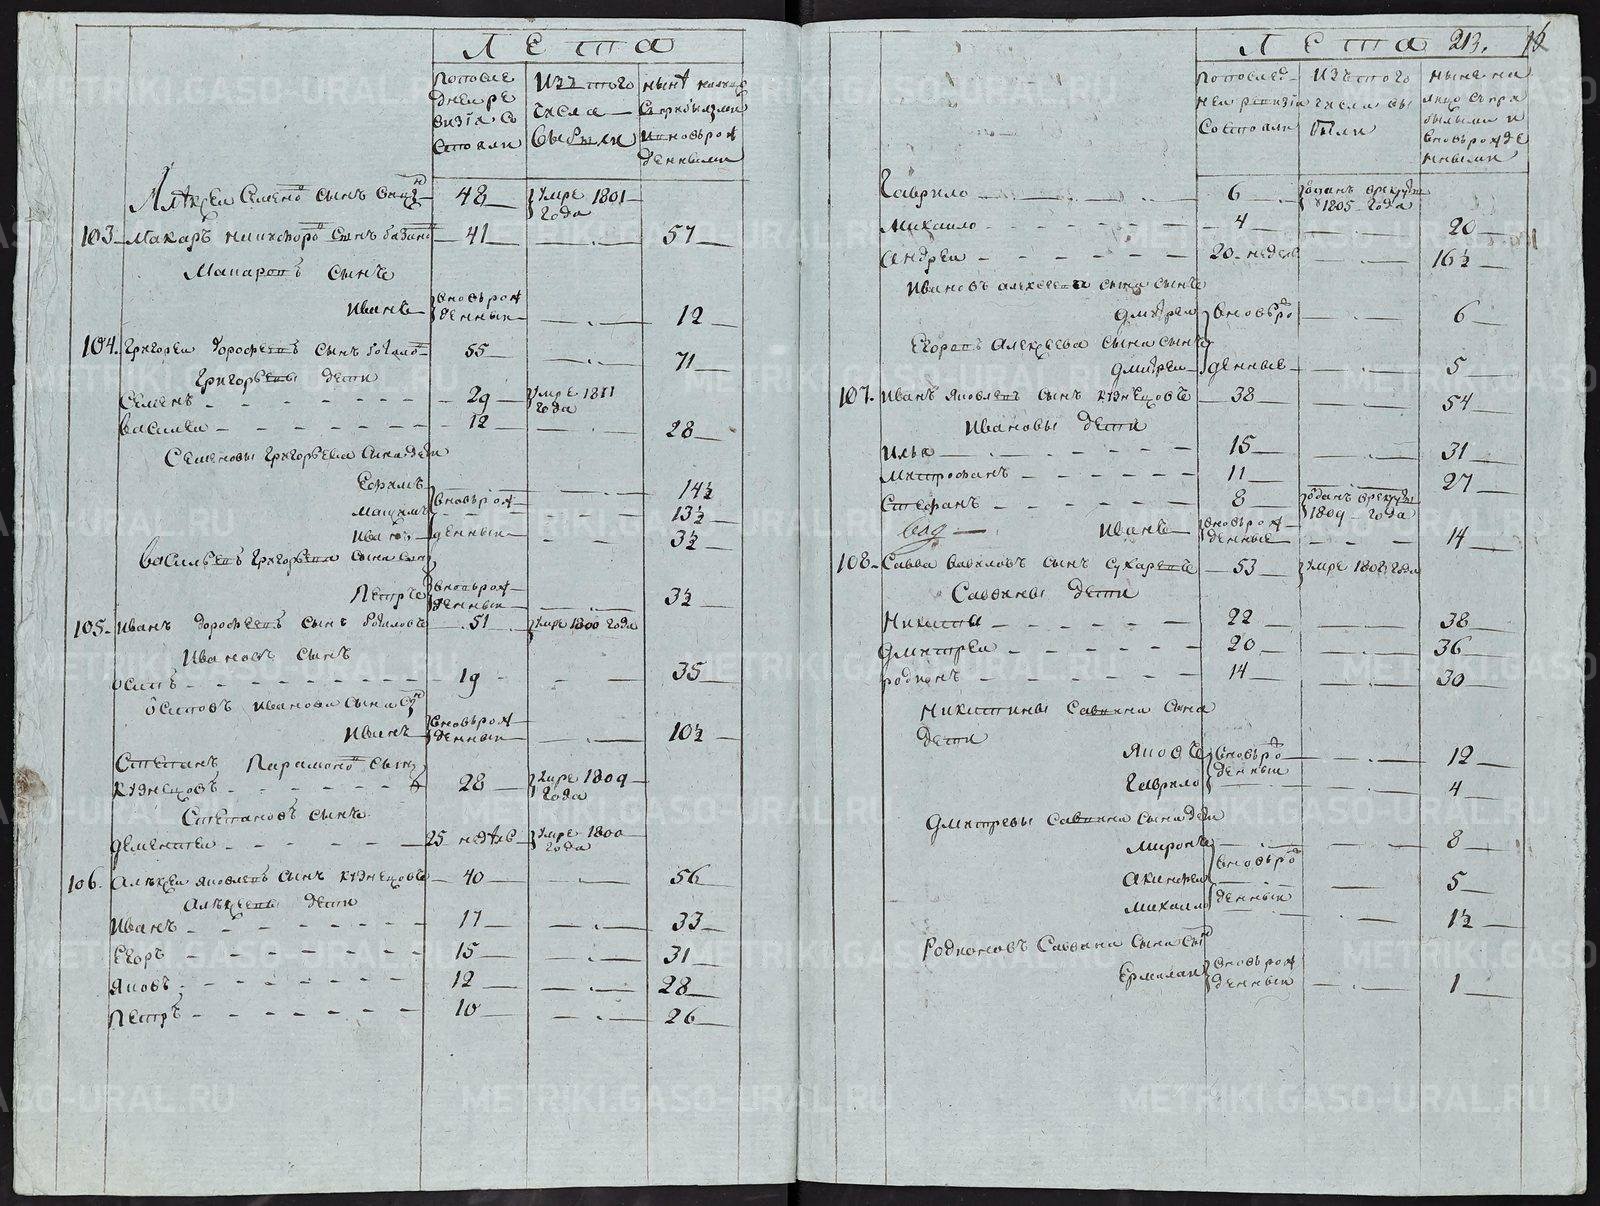 Лета
По последней ревизiи состояли
Изъ того числа выбыли
Ныне налицо с прибылыми и новорожденными
Алѣксеи Семено сынъ
48
умре 1801 года
103 Макаръ Никифоро сынъ
41
57
Макаровъ сынъ
Иванъ
вновьрожденныи
12
104. Григореи Дорофеевъ сынъ
55
71
Григорьевы дети
Семенъ
29
умре 1811 года
Василеи
12
28
Семеновы Григорьева сына дети
Ефимъ
14½
Максимъ
вновьрожденныи
13½
Иванъ
3½
Васильевъ Григорьева сына сынъ
Петръ
вновьрожденныи
3½
105. Иванъ Дорофеевъ сынъ
51
умре 1800 года
Ивановъ сынъ
Осипъ
19
35
Осиповъ Иванова сына сынъ
Иванъ
вновьрожденныи
10½
Степанъ Парамоно сынъ
Кузнецовъ
28
умре 1809 года
Степановъ сынъ
Дементеи
25 недѣль
умре 1800 года
106. Алѣксеи Яковлевъ сынъ Кузнецовъ
40
56
Алѣксеевы дети
Иванъ
17
33
Егоръ
15
31
Яковъ
12
28
Петръ
10
26
Лета
213.
16
По последнеи ревизiи состояли
Изъ того числа выбыли
Ныне налицо с прибылыми и вновьрожденными
Гаврило
6
отданъ в рекруты 1805 года
Михаило
4
20
Андреи
20 недель
16½
Ивановъ Алексеева сына сынъ
Дмитреи
вновьрожденные
6
Егоровъ Алексеева сына сынъ
Дмитреи
5
107. Иванъ Яковлевъ сынъ Кузнецовъ
38
54
Ивановы дети
Илья
15
31
Митрофанъ
11
27
Стефанъ
8
отданъ в рекруты 1809 года
Иванъ
вновьрожденные
14
108. Савва Вавиловъ сынъ Сухаревъ
53
умре 1802 года
Саввины дети
Никита
22
38
Дмитреи
20
36
Родионъ
14
30
Никитины Саввина сына
дети
Яковъ
вновьрожденныи
12
Гаврило
4
Дмитревы Саввина сына дети
Миронъ
вновьрожденныи
8
Акинфеи
5
Михаило
1½
Родионовъ Саввина сына сынъ
Ермолаи
вновьрожденныи
1
METRIKI.GASO-URAL.RU